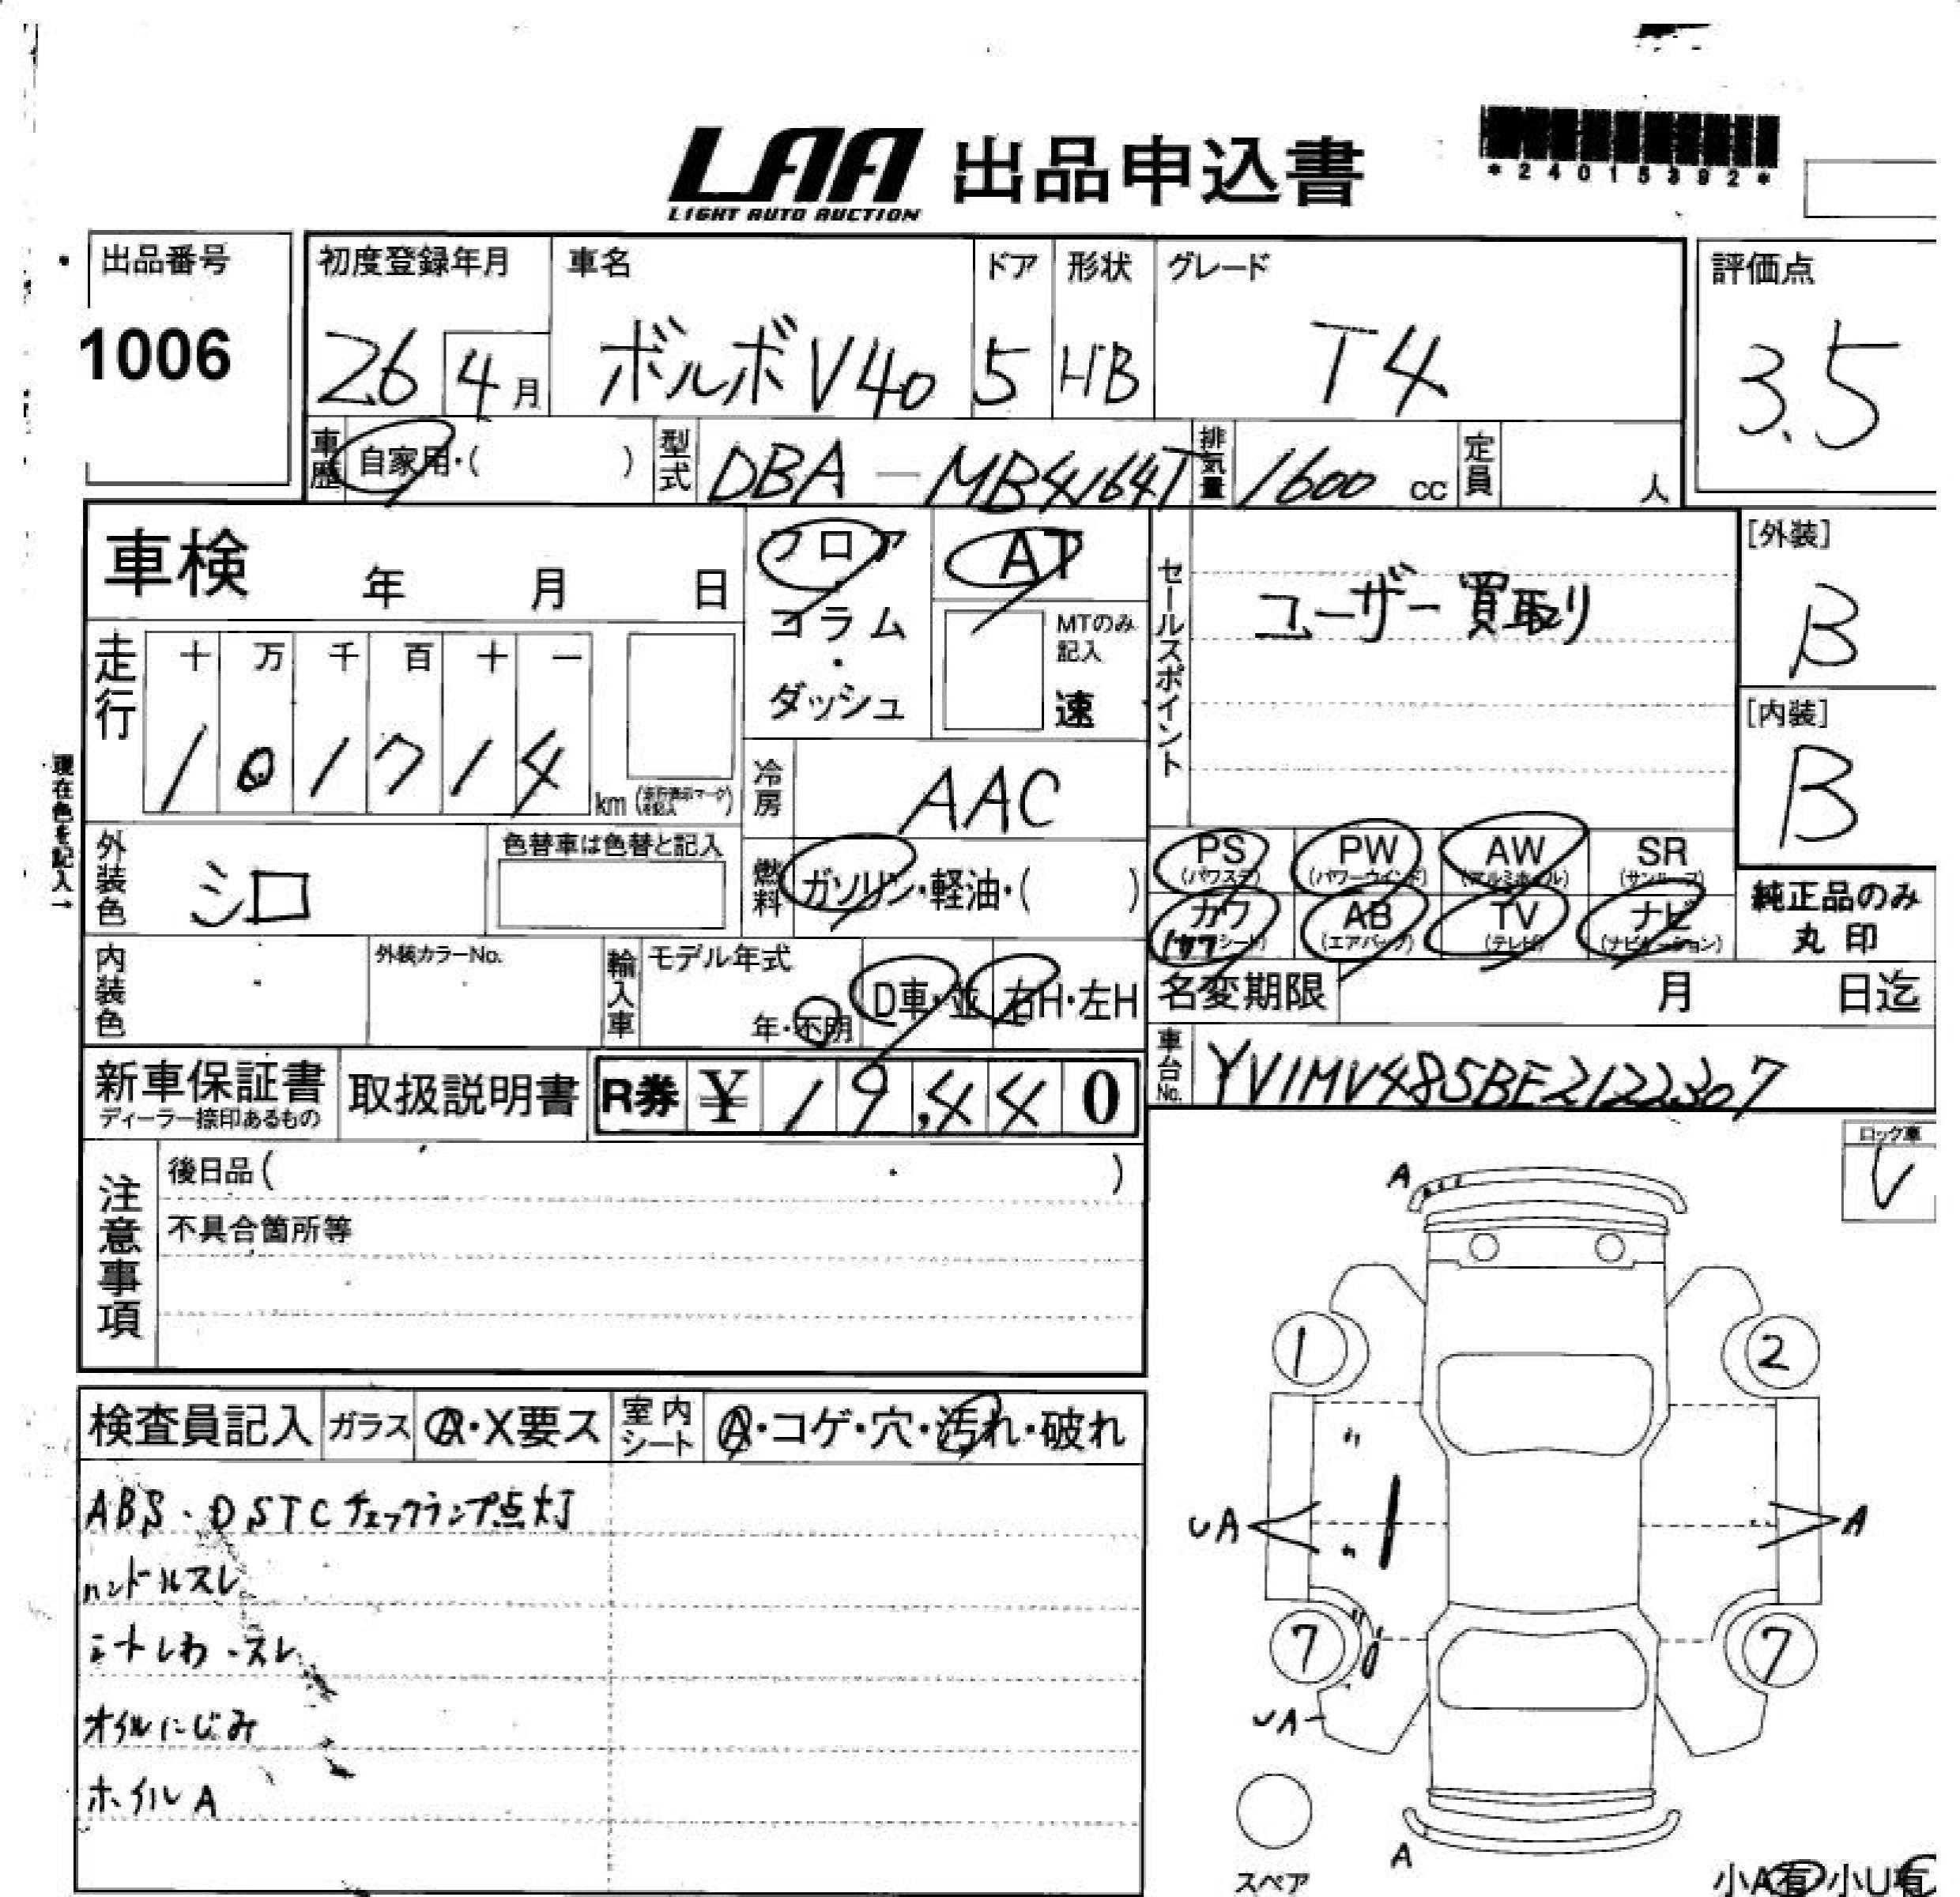 LAA 出品申込書
LIGHT AUTO AUCTION
*24015392*
出品番号
1006
初度登録年月 車名 ドア 形状 グレード
26 4月 ボルボV40 5 HB T4
評価点
3.5
車歴 自家用・( ) 型式 DBA-MB4164T 排気量 1600 cc 定員 人
車検 年 月 日
フロア
コラム
・
ダッシュ
AT
MTのみ
記入
速
セールスポイント
ユーザー買取り
[外装]
B
[内装]
B
走行
十 万 千 百 十 一
1 0 1 7 1 4 km
現在色を記入→
冷房 AAC
外装色 シロ
色替車は色替と記入
燃料 ガソリン・軽油・( )
PS PW AW SR
(パワステ) (パワーウインド) (アルミホイル) (サンルーフ)
カワ AB TV ナビ
(エアバッグ) (テレビ) (ナビゲーション)
純正品のみ
丸印
内装色
外装カラーNo.
輸入車 モデル年式
年・不明
D車・並 右H・左H
名変期限 月 日迄
車台No. YV1MV485BE2122307
新車保証書
ディーラー捺印あるもの
取扱説明書
R券 ¥ 19,440
注意事項
後日品( )
不具合箇所等
ロック車
レ
検査員記入 ガラス A・X要ス 室内シート A・コゲ・穴・汚れ・破れ
ABS・DSTCチェックランプ点灯
ハンドルスレ
シートしわ・スレ
オイルにじみ
ホイルA
A
1 2
〃
UA A
〃
7 7
UA
スペア
A
小A有 小U有